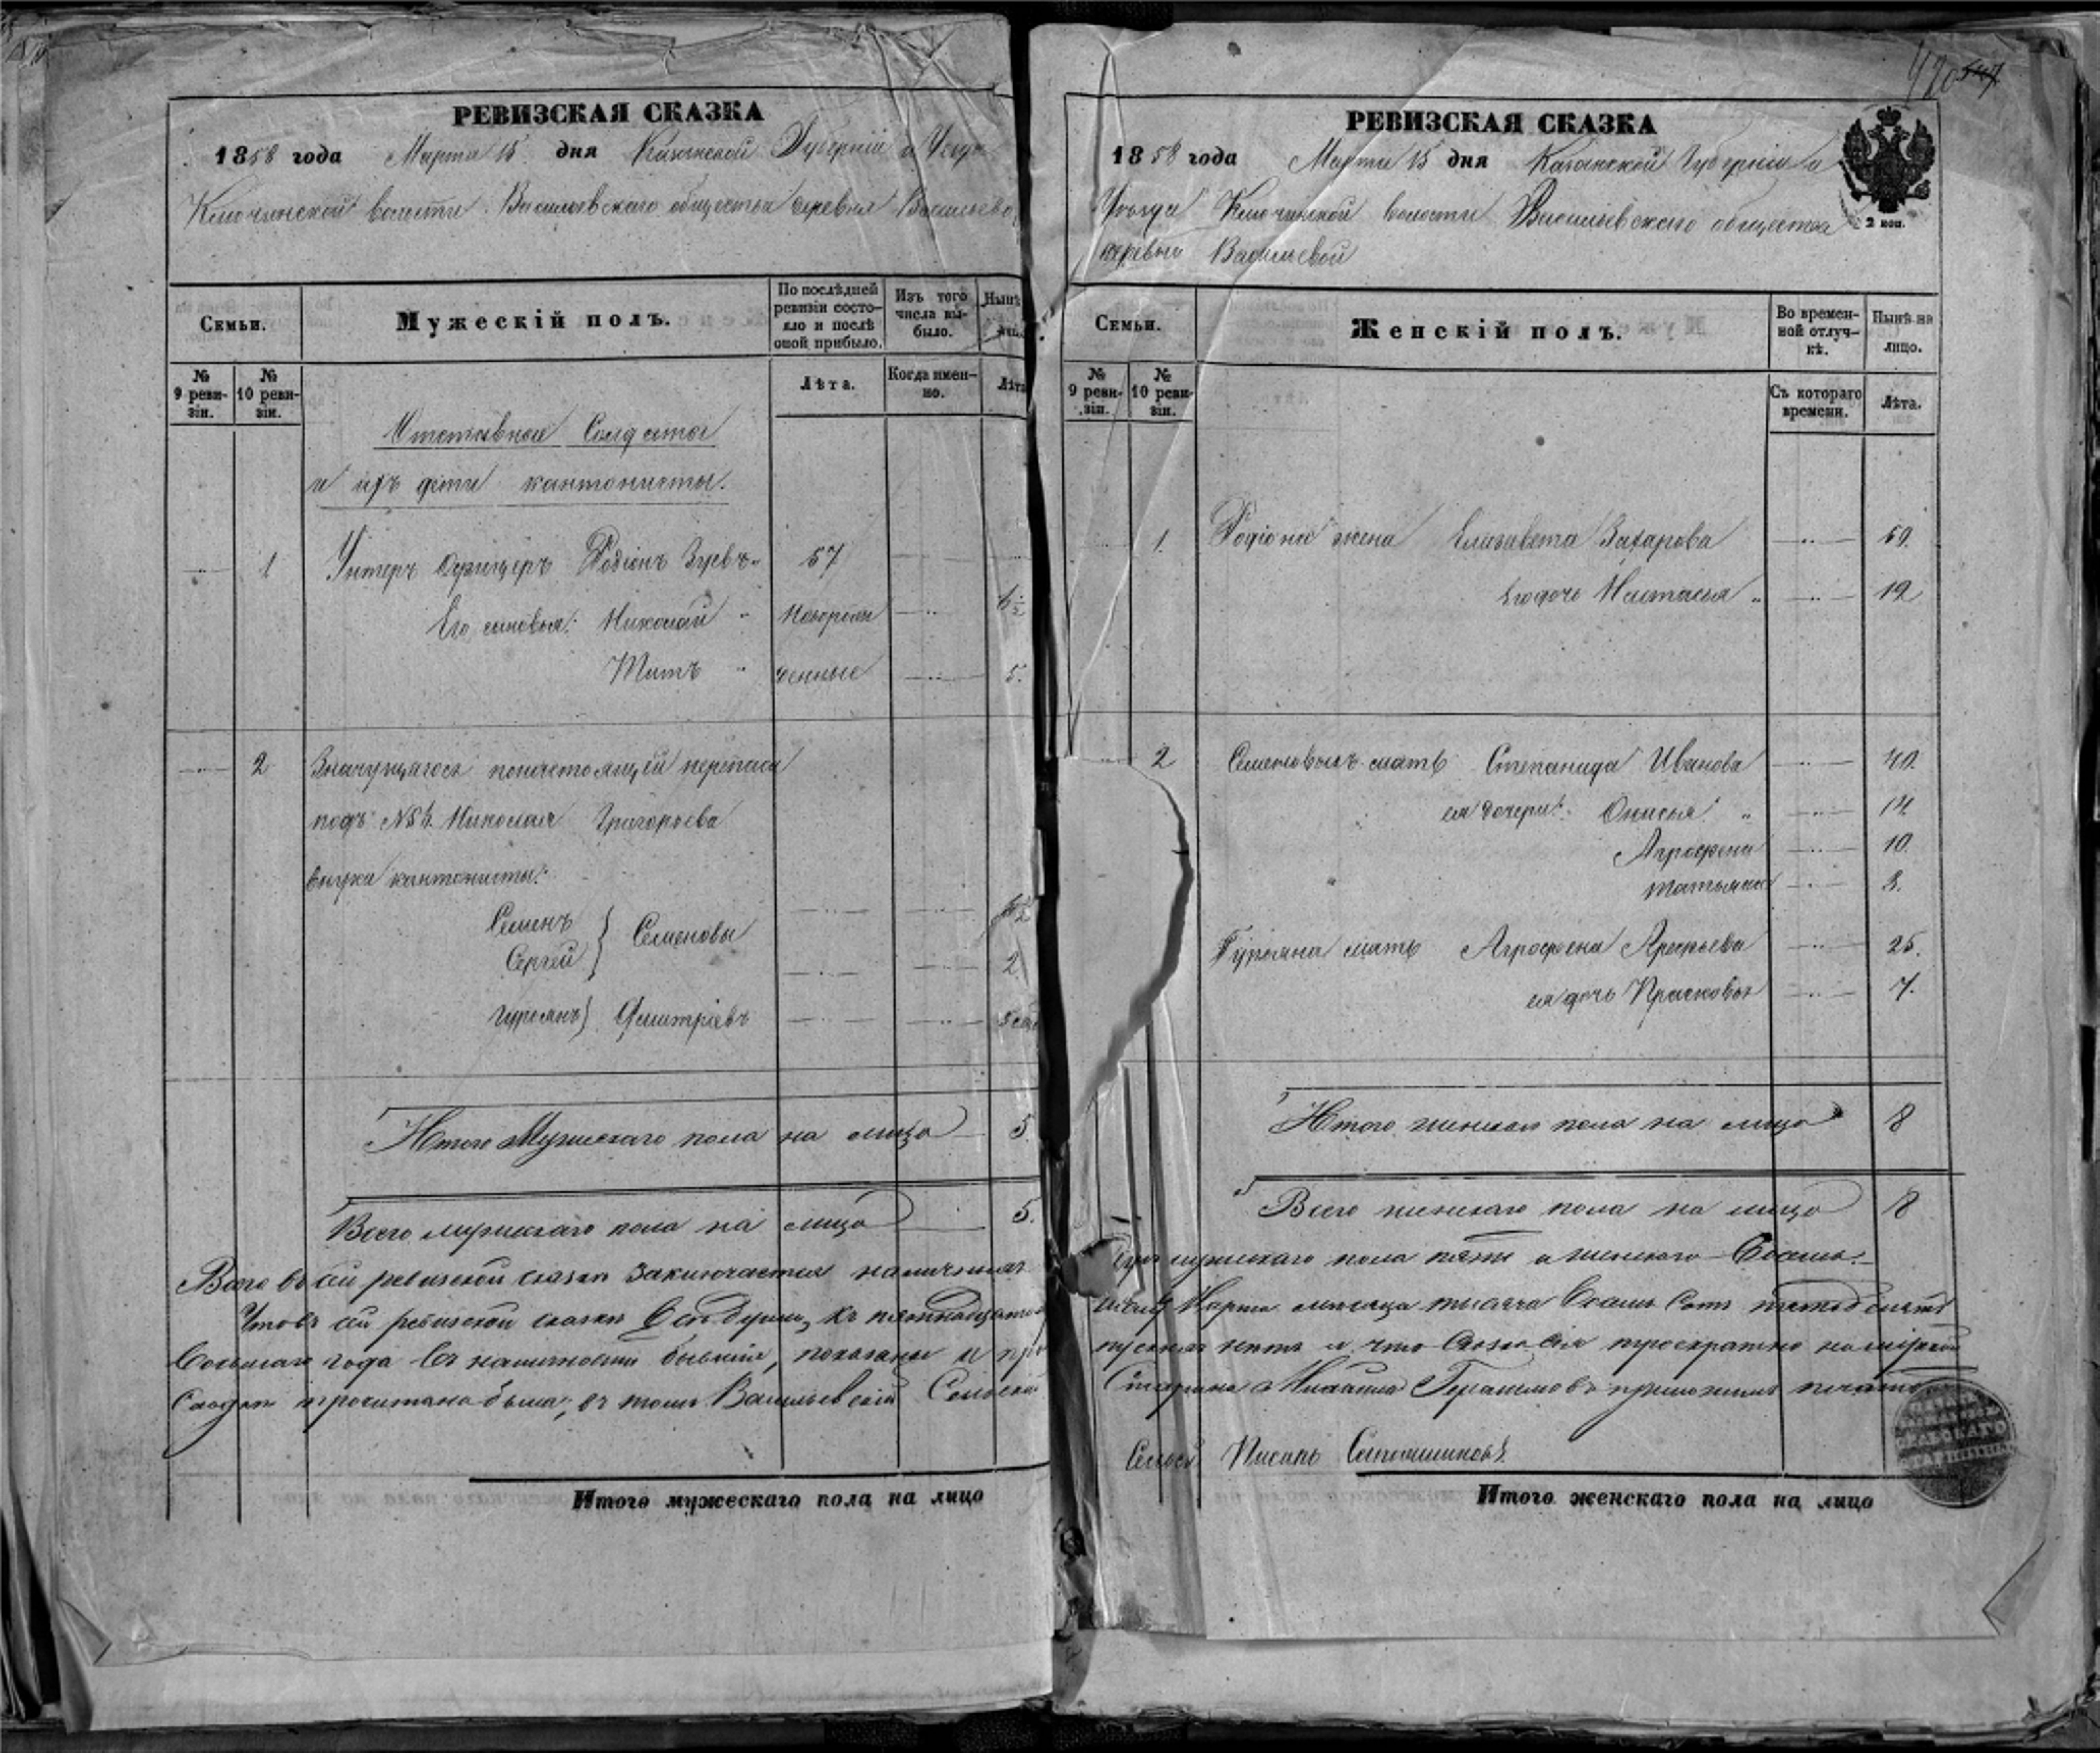 420
РЕВИЗСКАЯ СКАЗКА
1858 года Марта 15 дня Казанской Губерніи и Уезда
Ключинской волости Васильевскаго общества деревня Васильево
Семьи.
Мужескій полъ.
По послѣдней ревизіи состояло и послѣ оной прибыло.
Изъ того числа выбыло.
Нынѣ
№ 9 ревизіи.
№ 10 ревизіи.
Лѣта.
Когда именно.
Лѣта
Отставные Солдаты
и ихъ дети кантонисты.
1 Унтеръ Офицеръ Родіонъ Зуевъ 57
Его сыновья: Николай новорож 6½
Титъ денные 5.
2 Значущагося по настоящей переписи
подъ №4 Николая Григорьева
внуки кантонисты:
Семенъ
Сергей } Семеновы 2
Гурьянъ } Дмитріевъ
Итого Мужескаго пола на лицо 5.
Всего мужескаго пола на лицо 5.
Всего въ сей ревизской сказки заключается наличныхъ
Что въ сей ревизской сказки все души, къ пятнадцатому
восьмаго года въ наличности бывшія, показаны и про
Сходѣ прочитана была, въ томъ Васильевскій Сельскій
Итого мужескаго пола на лицо
РЕВИЗСКАЯ СКАЗКА
1858 года Марта 15 дня Казанской Губерніи и
Уезда Ключинской волости Васильевскаго общества
деревни Васильевой
2 коп.
Семьи.
Женскій полъ.
Во временной отлучкѣ.
Нынѣ на лицо.
№ 9 ревизіи.
№ 10 ревизіи.
Съ котораго времени.
Лѣта.
1. Родіона жена Елизавета Захарова 50.
Его дочь Настасья 12
2 Семеновыхъ мать Степанида Иванова 40.
ея дочери: Анисья 14.
Агрофена 10.
Татьяна 3.
Гурьяна мать Агрофена Арефьева 25.
ея дочь Прасковья 7.
Итого женскаго пола на лицо 8
Всего женскаго пола на лицо 8
душъ мужскаго пола пять а женскаго восемь.
Марта месяца тысяча восемь сотъ пятьдесятъ
пускныхъ нетъ и что сказка сія троекратно на мірской
Старшина Михаила Герасимовъ приложилъ печать
Сельскій Писарь
Итого женскаго пола на лицо